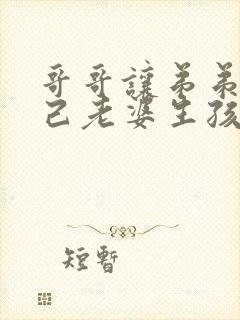 哥哥讓弟弟
己老婆生孩
短暫